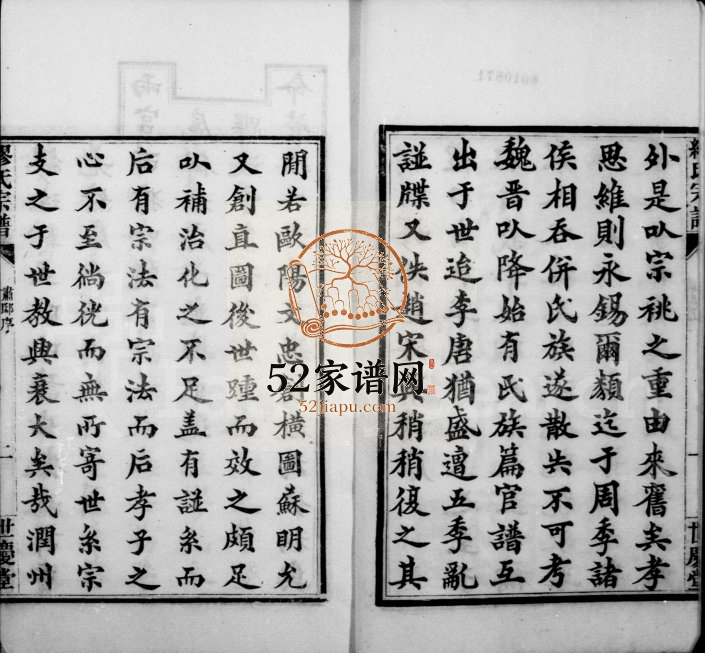 繆氏宗譜
一
世慶堂
外是㕥宗祧之重由來舊矣孝
思維則永錫爾類迄于周季諸
侯相吞併氏族遂散失不可考
魏晉㕥降始有氏族篇官譜互
出于世迨李唐猶盛遭五季亂
諩牒又佚趙宋稍稍復之其
閒若歐陽文忠橫圖蘇明允
又創直圖後世踵而效之頗足
㕥補治化之不足盖有諩系而
后有宗法有宗法而后孝子之
心不至徜而無所寄世系宗
支之于世教興衰大矣哉潤州
繆氏宗譜
肅邸序
二
世慶堂
52家谱网
52jiapu.com